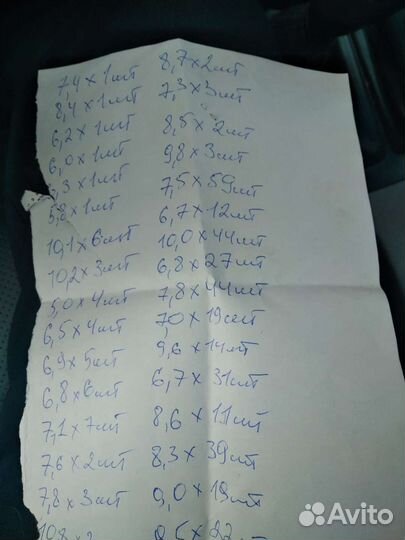 7,4 x 1шт
8,4 x 1шт
6,2 x 1шт
6,0 x 1шт
,3 x 1шт
5,8 x 1шт
10,1 x 6шт
10,2 x 3шт
5,0 x 4шт
6,5 x 4шт
6,9 x 5шт
6,8 x 6шт
7,1 x 7шт
7,6 x 2шт
7,8 x 3шт
10,8 x
8,7 x 2шт
7,3 x 3шт
8,5 x 2шт
9,8 x 3шт
7,5 x 59шт
6,7 x 12шт
10,0 x 44шт
6,8 x 27шт
7,8 x 44шт
7,0 x 19шт
9,6 x 14шт
6,7 x 31шт
8,6 x 11шт
8,3 x 39шт
9,0 x 19шт
x 22
Avito